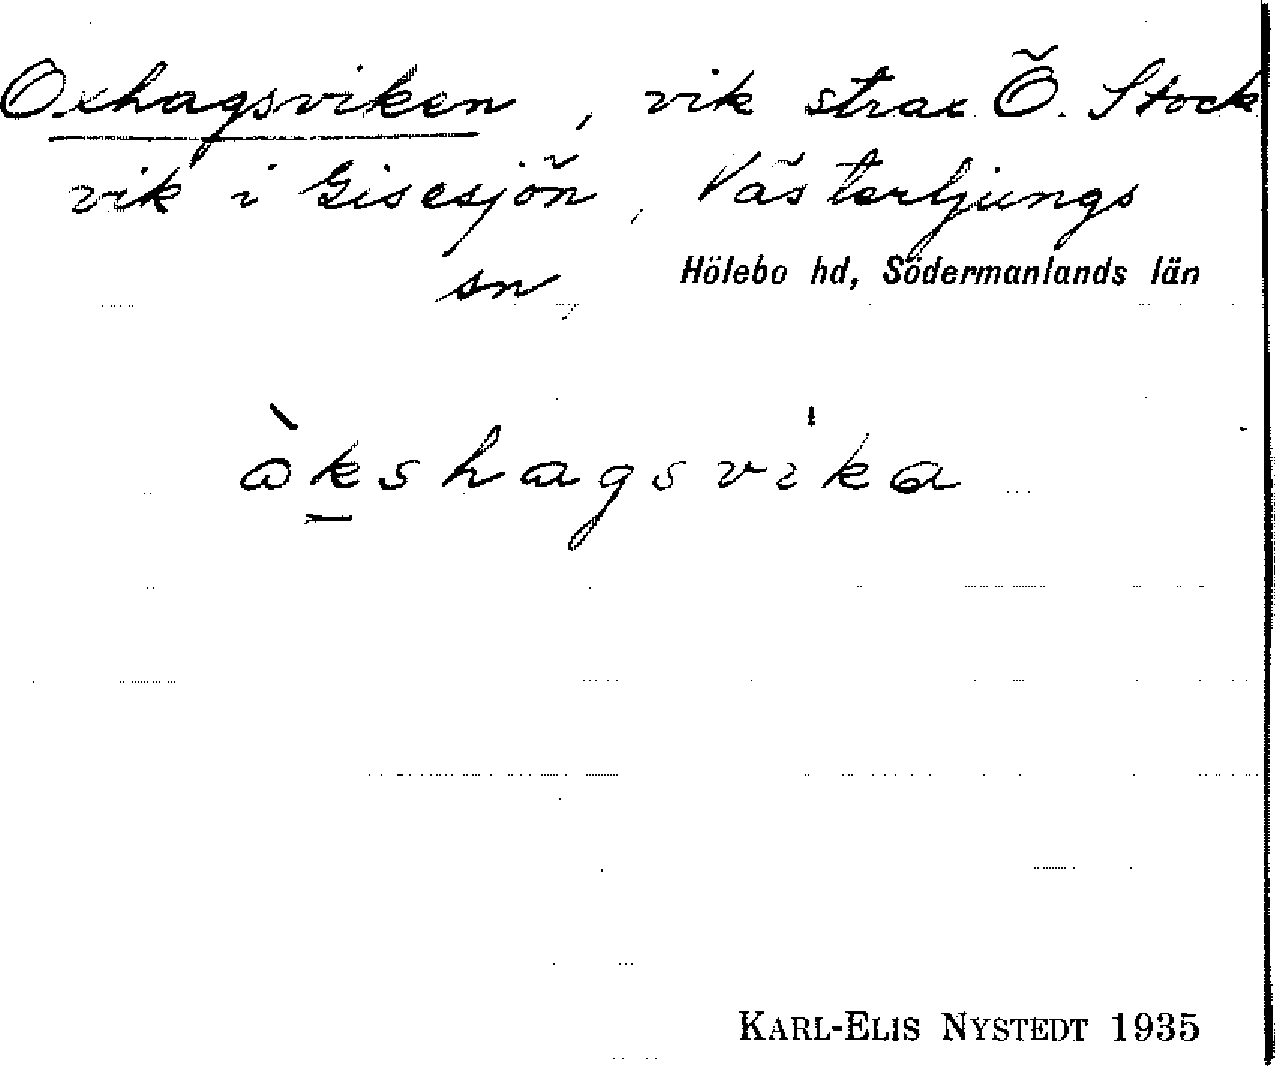 Oxhagsviken, vik strax Ö. Stock
vik i Gisesjön, Västerljungs
sn,
Hölebo hd, Södermanlands län
òkshagsvìka
KARL-ELIS NYSTEDT 1935